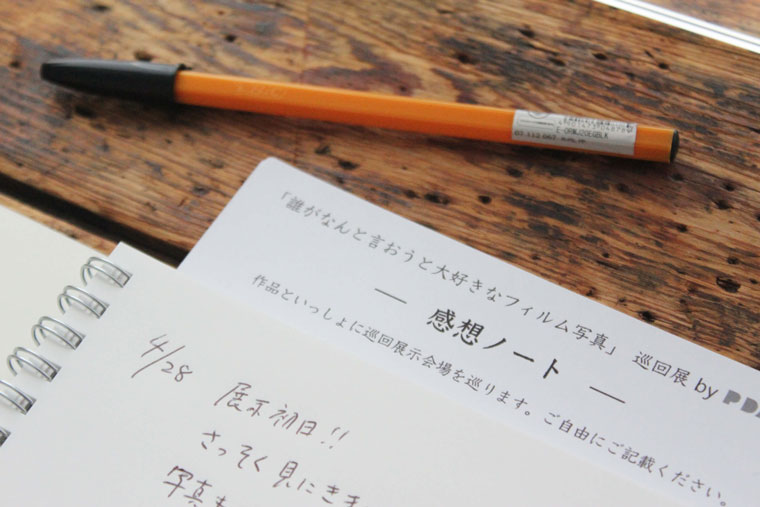 E-ORNJ20EGBLK
「誰がなんと言おうと大好きなフィルム写真」 巡回展 by
― 感想ノート ―
作品といっしょに巡回展示会場を巡ります。ご自由にご記載ください。
4/28 展示初日!!
さっそく見にきま
写真も